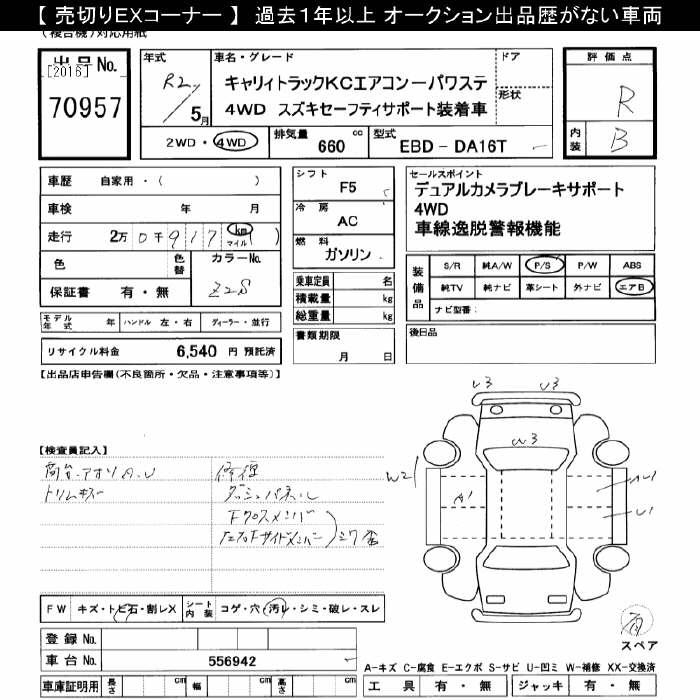 【 売切りEXコーナー 】 過去１年以上 オークション出品歴がない車両
(複合機)対応用紙
出品No.
[2016]
70957
年式
R2
5月
車名・グレード
キャリィトラックKCエアコンーパワステ
4WD スズキセーフティサポート装着車
ドア
形状
2WD・4WD
排気量
660 cc
型式
EBD - DA16T
評価点
R
内装
B
車歴 自家用・( )
車検 年 月
走行 2万 0千917 km マイル ( )
色
色替
カラーNo.
Z2S
保証書 有・無
モデル年式 年 ハンドル 左・右 ディーラー・並行
リサイクル料金 6,540 円 預託済
シフト
F5
冷房
AC
燃料
ガソリン
乗車定員 名
積載量 kg
総重量 kg
書類期限
月 日
セールスポイント
デュアルカメラブレーキサポート
4WD
車線逸脱警報機能
装備品
S/R 純A/W P/S P/W ABS
純TV 純ナビ 革シート 外ナビ エアB
ナビ型番:
後日品
【出品店申告欄(不良箇所・欠品・注意事項等)】
【検査員記入】
荷台・アオリA.U
トリムキズ
修理
ダッシュパネル
Fクロスメンバー
左右Fサイドメンバー
U3 U3
W3
W2
A1
AU1
U1
FW キズ・トビ石・割レX
シート内装 コゲ・穴・汚レ・シミ・破レ・スレ
登録 No.
車台 No. 556942
車庫証明用 長さ cm 幅 cm 高さ cm
有
スペア
A-キズ C-腐食 E-エクボ S-サビ U-凹ミ W-補修 XX-交換済
工具 有・無 ジャッキ 有・無